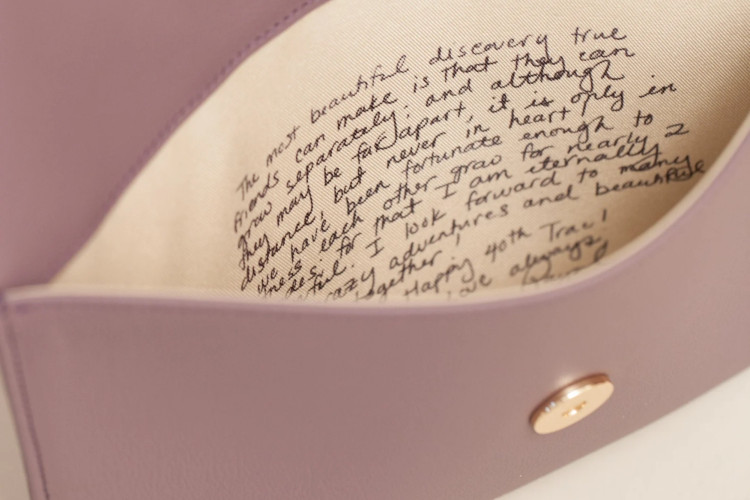 The most beautiful discovery true
friends can make is that they can
grow separately; and although
they may be far apart, it is only in
distance, but never in heart!
We have been fortunate enough to
ness each other grow for nearly 2
des; for that I am eternally
ful. I look forward to many
razy adventures and beautiful
ogether! Happy 40th Trac!
ve always,